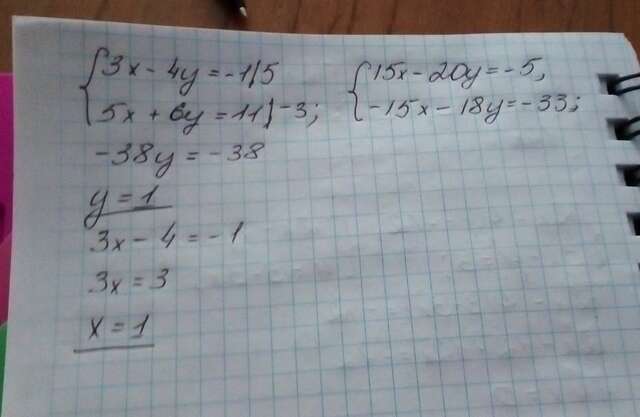 3x - 4y = -1|5
5x + 6y = 11|-3;
15x - 20y = -5,
-15x - 18y = -33;
-38y = -38
y = 1
3x - 4 = -1
3x = 3
x = 1